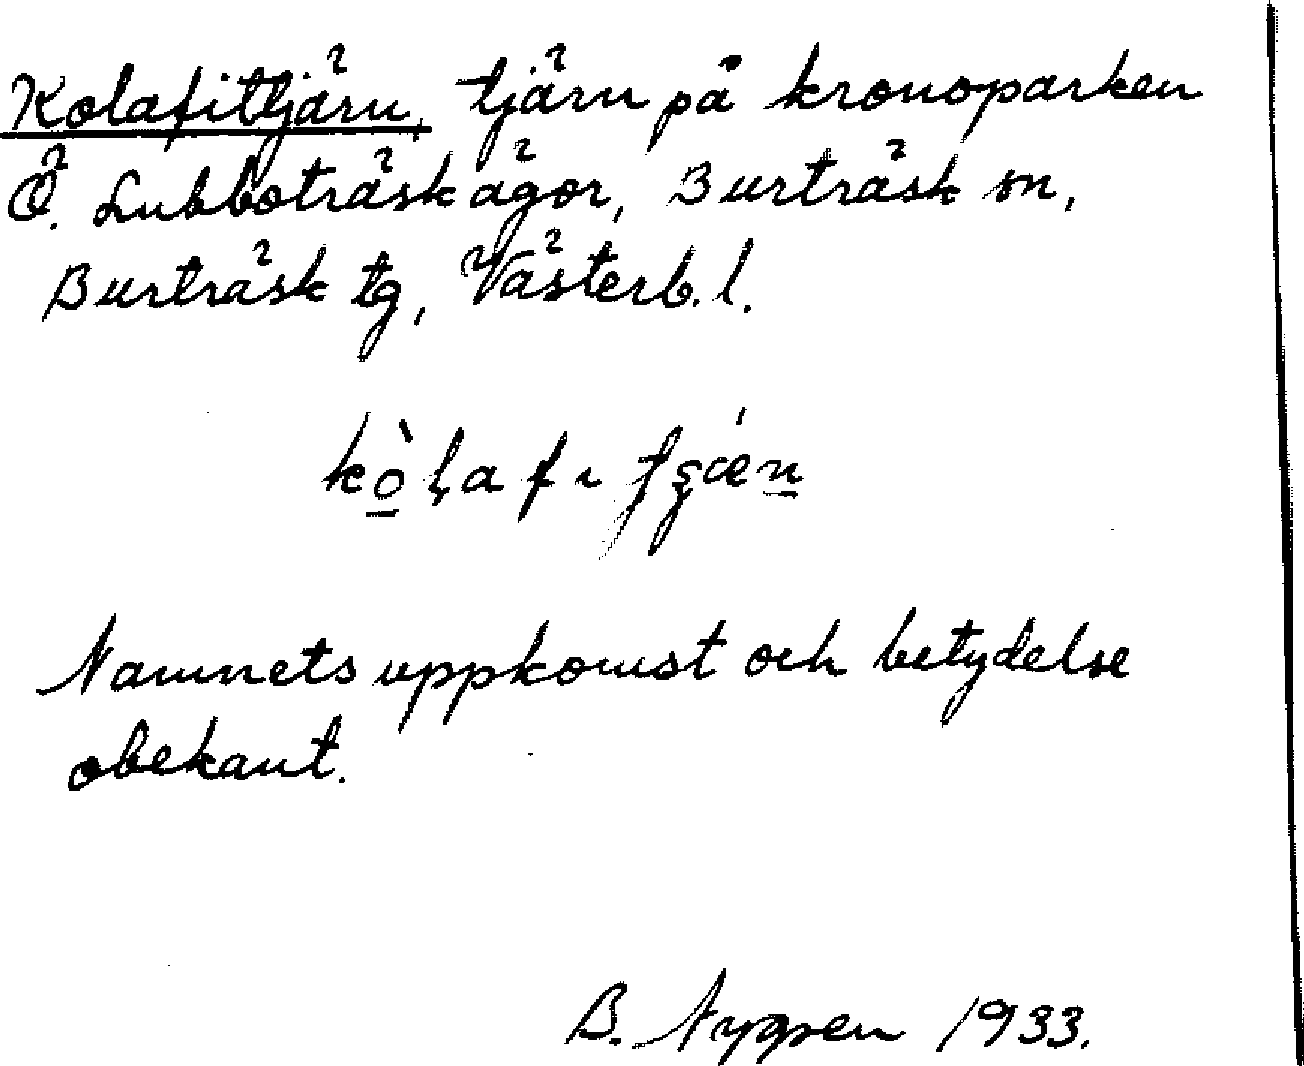 Kolafitjärn, tjärn på kronoparken
Ö. Lubboträsk ägor, Burträsk sn,
Burträsk tg, Västerb. l.
Namnets uppkomst och betydelse
obekant.
B. Nygren 1933.